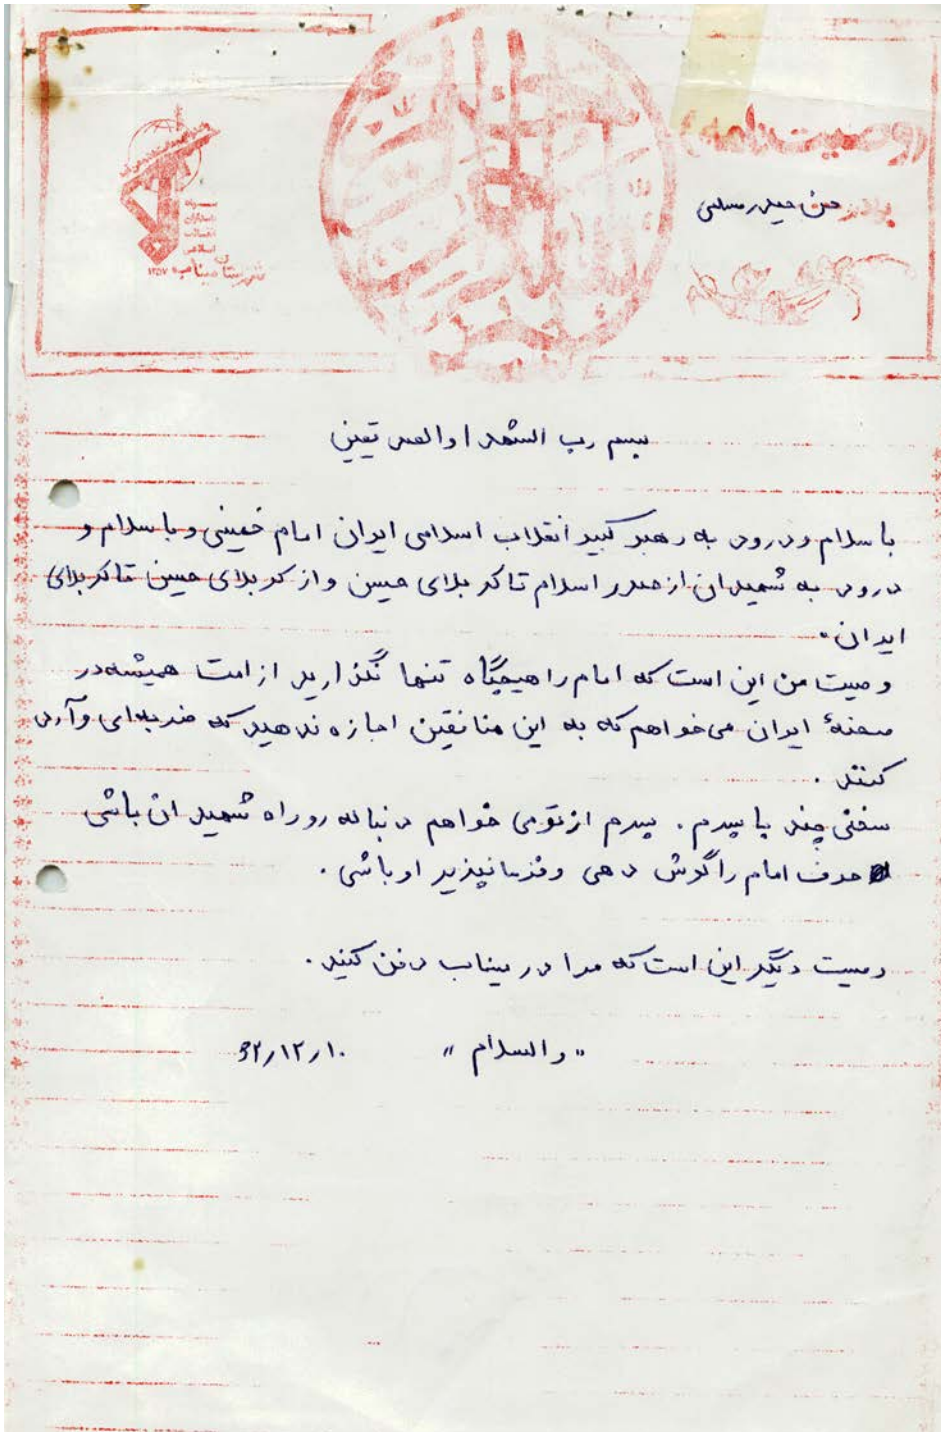 (وصیت نامه)
برادر حسن حیدر مسلمی
سپاه
پاسداران
انقلاب
اسلامی
شهرستان میناب ۱۳۵۷
بسم رب الشهدا والصدیقین
با سلام و درود به رهبر کبیر انقلاب اسلامی ایران امام خمینی و با سلام و
درود به شهیدان از صدر اسلام تا کربلای حسین و از کربلای حسین تا کربلای
ایران.
وصیت من این است که امام را هیچگاه تنها نگذارید از امت همیشه در
صحنهٔ ایران می‌خواهم که به این منافقین اجازه ندهید که ضربه‌ای وآرد
کنند.
سخنی چند با پدرم. پدرم از تو می خواهم دنباله رو راه شهیدان باشی
حرف امام را گوش دهی و فرمانپذیر او باشی.
وصیت دیگر این است که مرا در میناب دفن کنید.
"والسلام" ۶۲/۱۲/۱۰